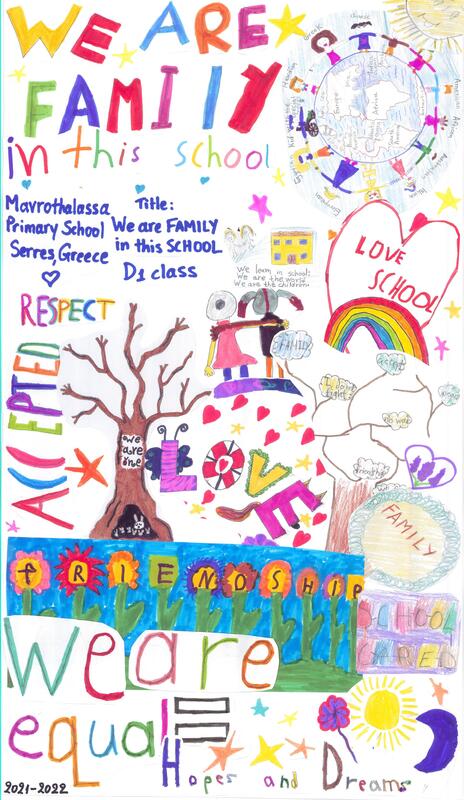 WE ARE
FAMIlY
in this school
Mavrothalassa
Primary School
Serres, Greece
Title:
We are FAMILY
in this SCHOOL
D1 class
Europe
Africa
We learn in school:
We are the world
We are the children!
LOVE
SCHOOL
RESPECT
ACCEPTED
we
are
one
LOVE
FAMILY
accept
no war
friendship
FAMILY
FRIENDSHIP
SCHOOL
CARED
We are
equal =
Hopes and Dreams
2021-2022